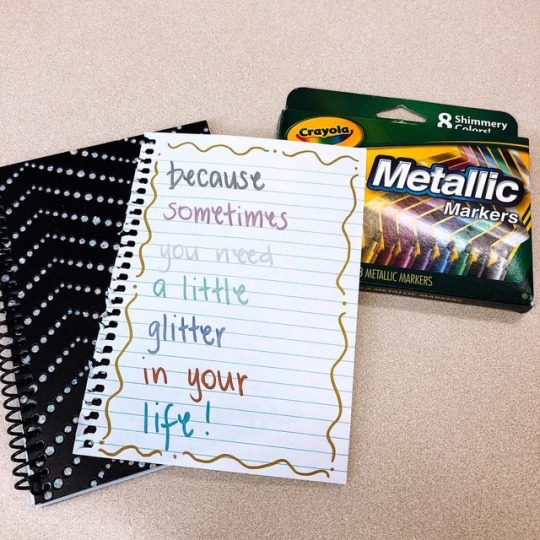 because
sometimes
you need
a little
glitter
in your
life!
Crayola
8 Shimmery
Colors!
Metallic
Markers
8 METALLIC MARKERS